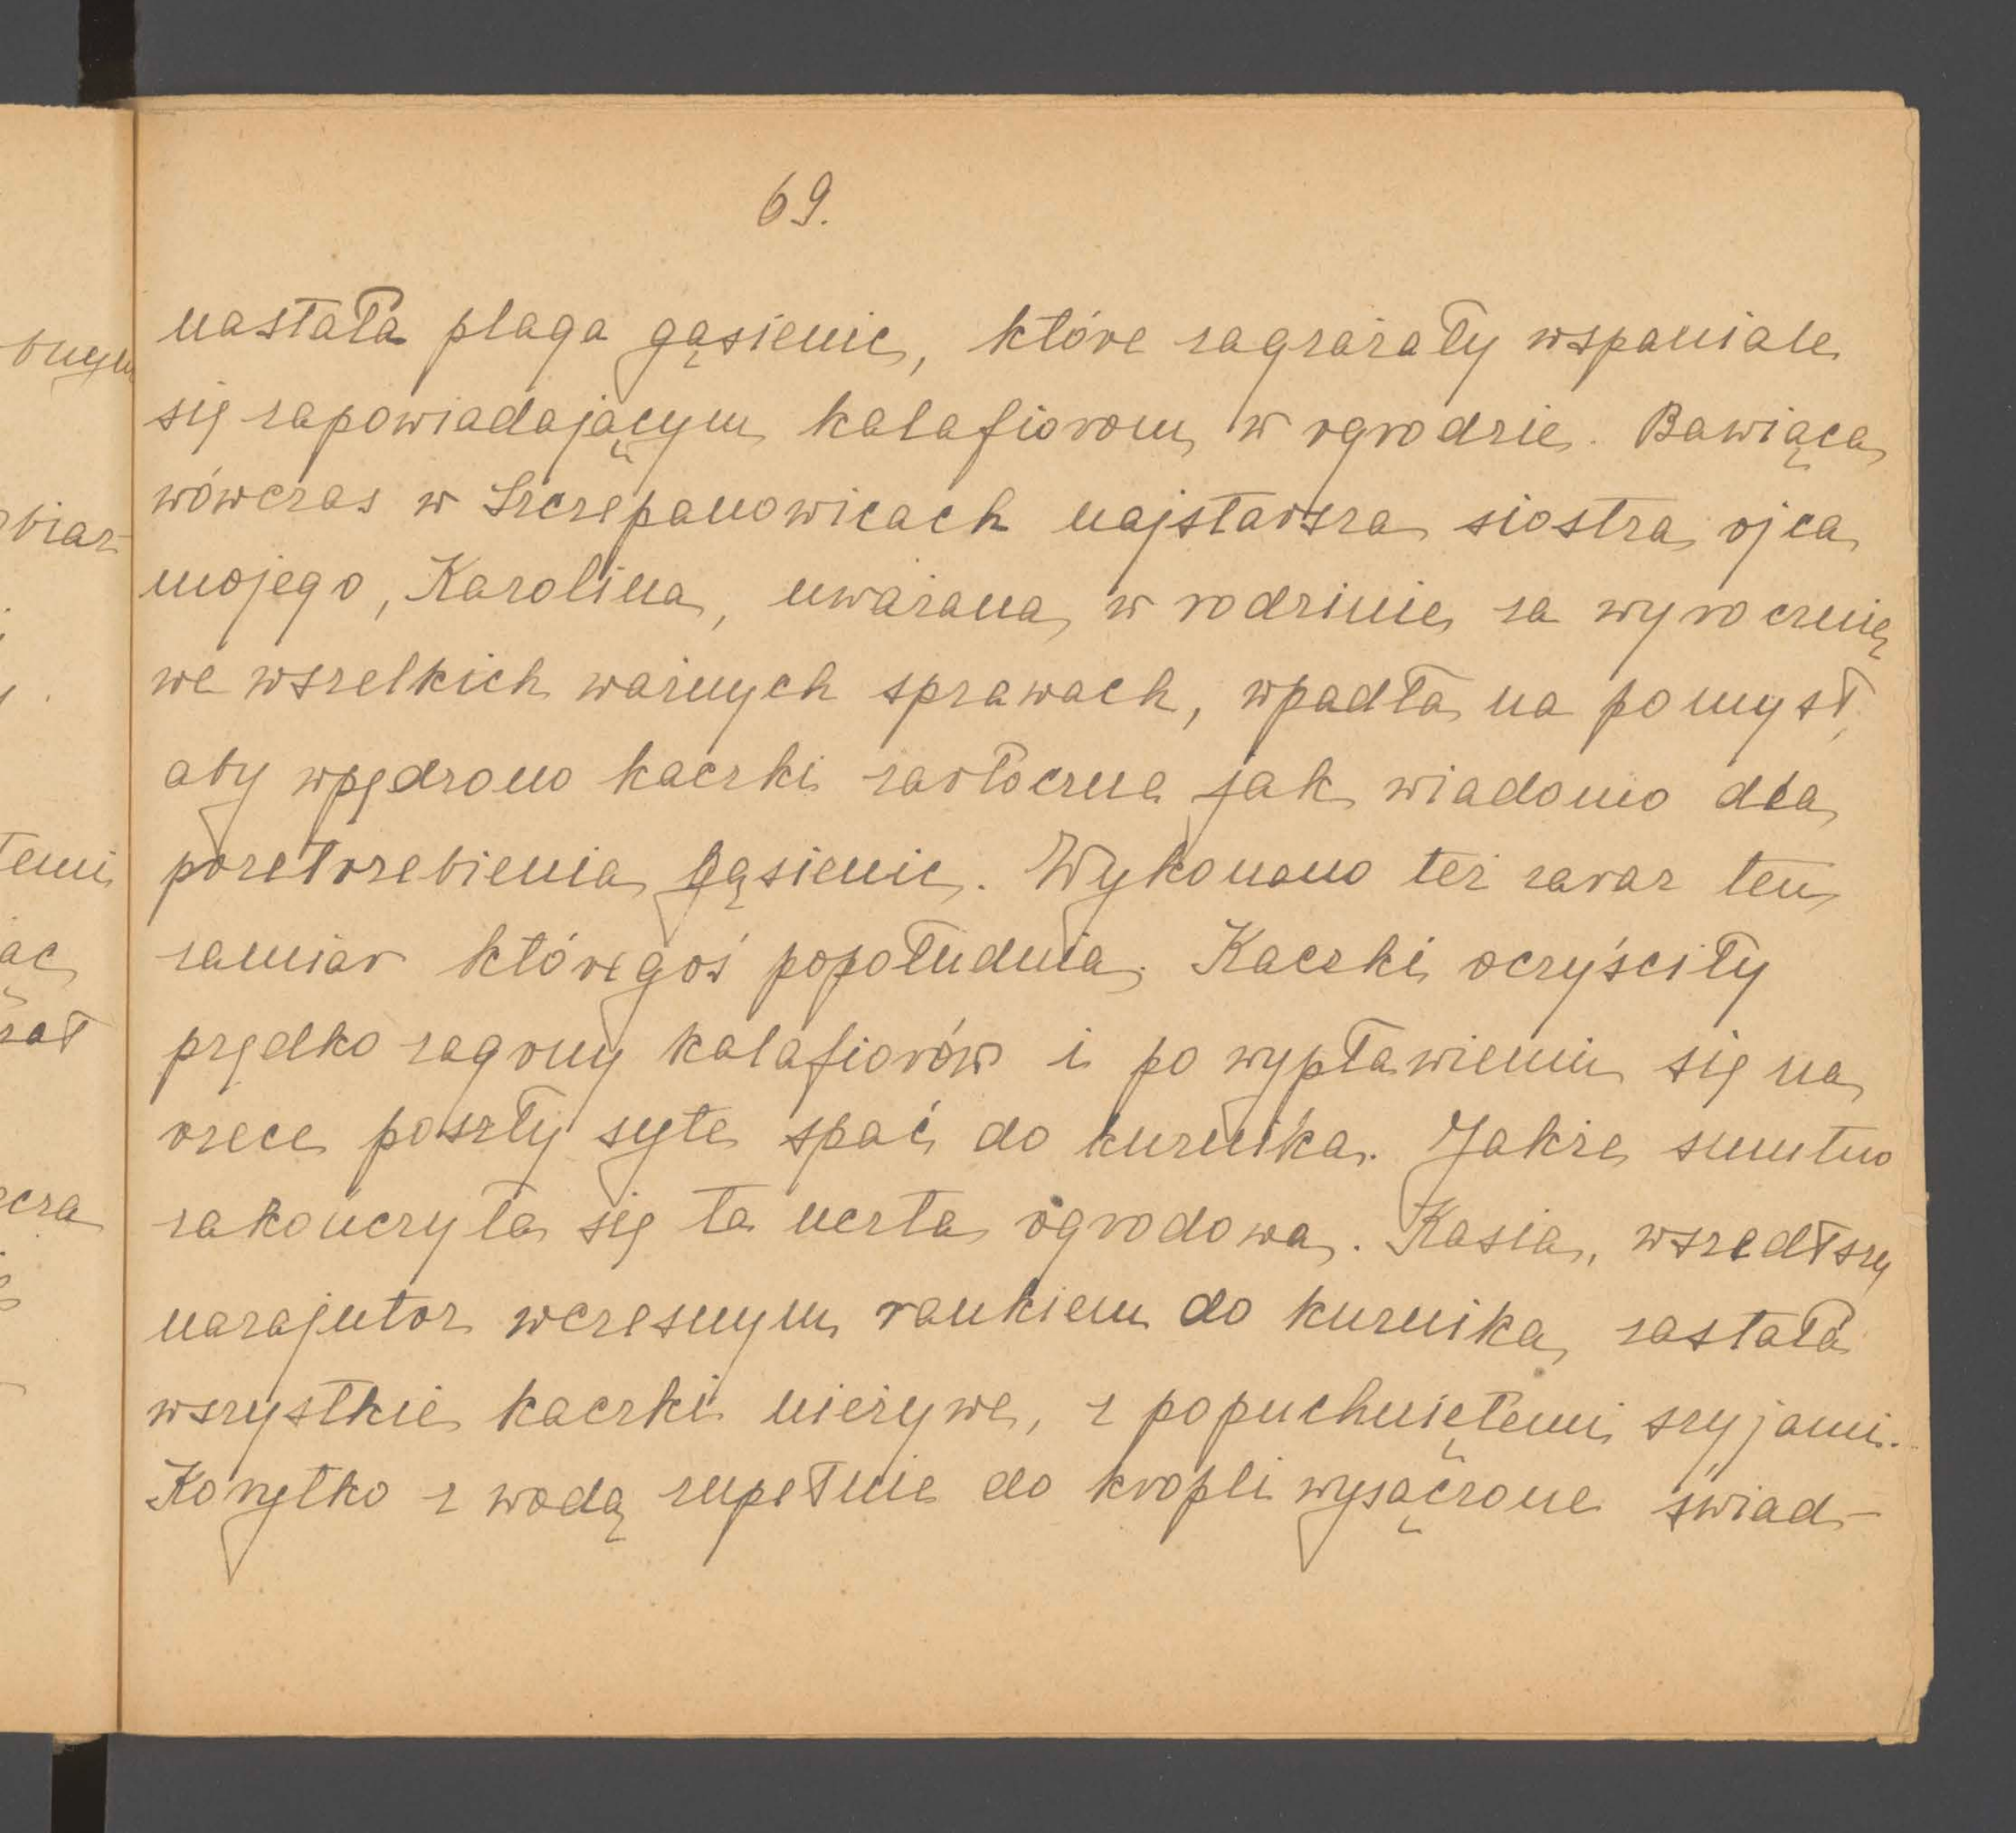 69.
nastała plaga gąsienic, które zagrażały wspaniale
się zapowiadającym kalafiorom w ogrodzie. Bawiąca
wówczas w Szczepanowicach najstarsza siostra ojca
mojego, Karolina, uważana w rodzinie za wyrocznię
we wszelkich ważnych sprawach, wpadła na pomysł,
aby wpędzono kaczki żarłoczne jak wiadomo dla
powytrzebienia gąsienic. Wykonano też zaraz ten
zamiar któregoś popołudnia. Kaczki oczyściły
prędko zagony kalafiorów i po wypławieniu się na
rzece poszły syte spać do kurnika. Jakże smutno
zakończyła się ta uczta ogrodowa. Kasia, wszedłszy
nazajutrz wczesnym rankiem do kurnika, zastała
wszystkie kaczki nieżywe, z popuchniętemi szyjami.
Korytko z wodą zupełnie do kropli wysączone świad-
bnym
biar-
temi
ąc
zał
cza